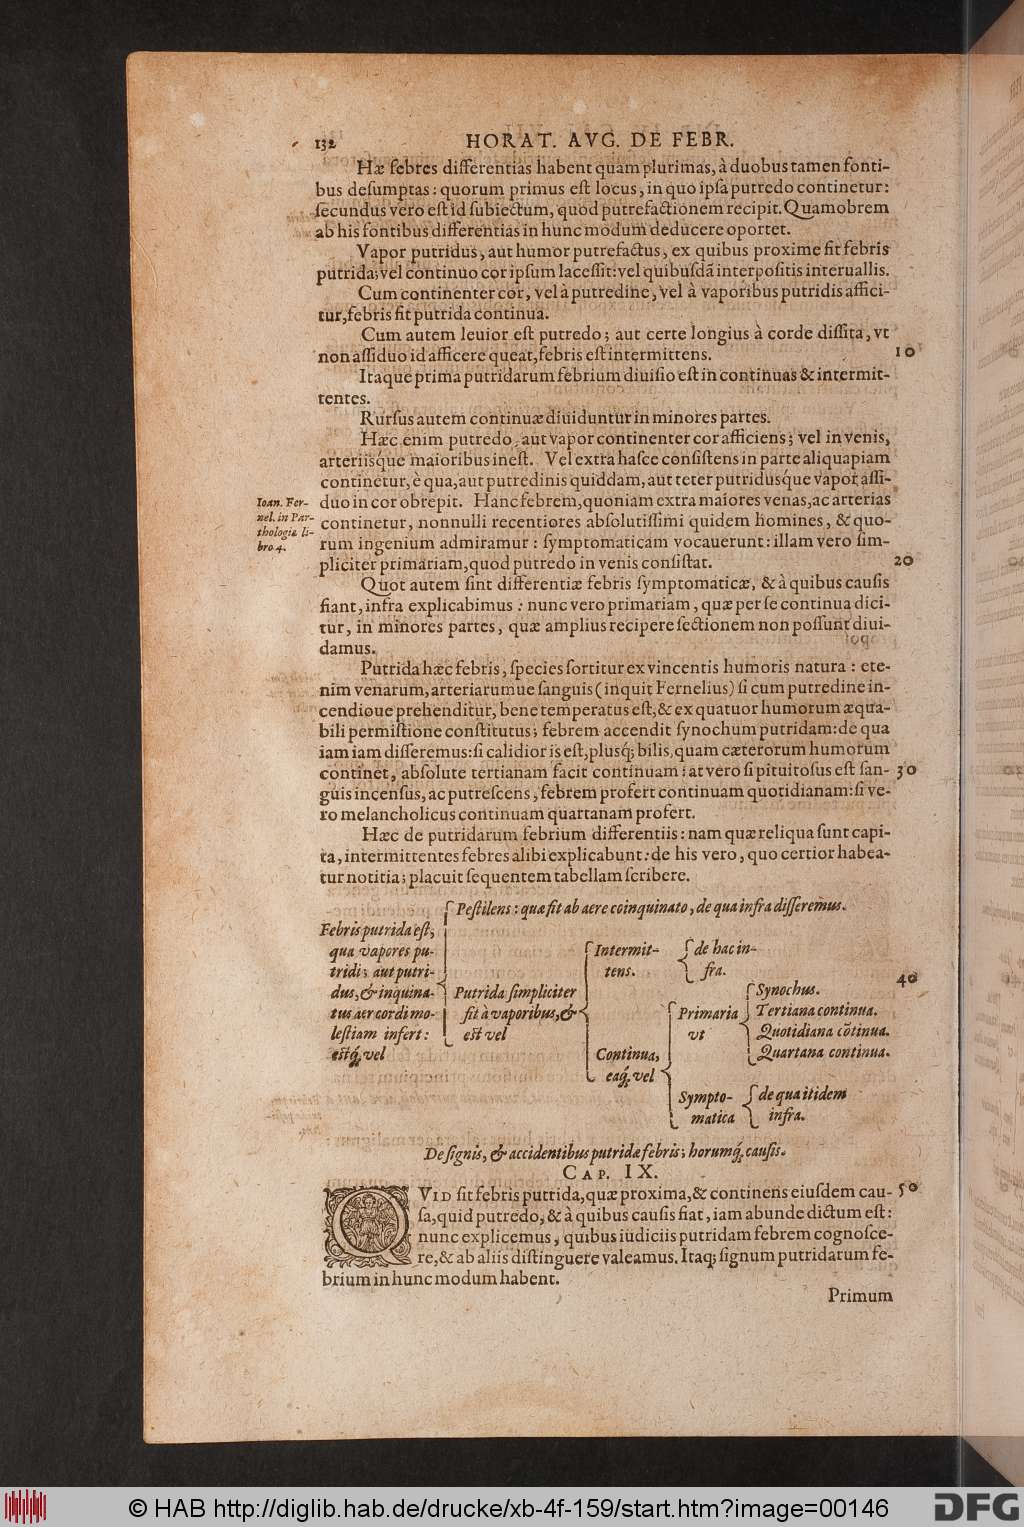 132 HORAT. AVG. DE FEBR.
Hæ febres differentias habent quàm plurimas, à duobus tamen fonti-
bus desumptas: quorum primus est locus, in quo ipsa putredo continetur:
secundus vero est id subiectum, quod putrefactionem recipit. Quamobrem
ab his fontibus differentias in hunc modum deducere oportet.
Vapor putridus, aut humor putrefactus, ex quibus proxime fit febris
putrida; vel continuo cor ipsum lacessit: vel quibusdã interpositis interuallis.
Cum continenter cor, vel à putredine, vel à vaporibus putridis affici-
tur, febris fit putrida continua.
Cum autem leuior est putredo; aut certe longius à corde dissita, vt
non assiduo id afficere queat, febris est intermittens. 10
Itaque prima putridarum febrium diuisio est in continuas & intermit-
tentes.
Rursus autem continuæ diuiduntur in minores partes.
Hæc enim putredo, aut vapor continenter cor afficiens; vel in venis,
arteriisque maioribus inest. Vel extra hasce consistens in parte aliquapiam
continetur, è qua, aut putredinis quiddam, aut teter putridusque vapor assi-
duo in cor obrepit. Hanc febrem, quoniam extra maiores venas, ac arterias
Ioan. Fer-
nel. in Par-
thologiæ li-
bro 4.
continetur, nonnulli recentiores absolutissimi quidem homines, & quo-
rum ingenium admiramur: symptomaticam vocauerunt: illam vero sim-
pliciter primariam, quod putredo in venis consistat. 20
Quot autem sint differentiæ febris symptomaticæ, & à quibus causis
fiant, infra explicabimus: nunc vero primariam, quæ per se continua dici-
tur, in minores partes, quæ amplius recipere sectionem non possunt diui-
damus.
Putrida hæc febris, species sortitur ex vincentis humoris natura: ete-
nim venarum, arteriarumue sanguis (inquit Fernelius) si cum putredine in-
cendioue prehenditur, bene temperatus est, & ex quatuor humorum æqua-
bili permistione constitutus; febrem accendit synochum putridam: de qua
iam iam disseremus: si calidior is est, plusq́; bilis, quam cæterorum humorum
continet, absolute tertianam facit continuam: at vero si pituitosus est san- 30
guis incensus, ac putrescens, febrem profert continuam quotidianam: si ve-
ro melancholicus continuam quartanam profert.
Hæc de putridarum febrium differentiis: nam quæ reliqua sunt capi-
ta, intermittentes febres alibi explicabunt: de his vero, quo certior habea-
tur notitia; placuit sequentem tabellam scribere.
Febris putrida est;
qua vapores pu-
tridi; aut putri-
dus, & inquina-
tus aer cordi mo-
lestiam infert:
estq́, vel
Pestilens: quæ fit ab aere coinquinato, de qua infra disseremus.
Putrida simpliciter
fit à vaporibus, &
est vel
Intermit-
tens.
de hac in-
fra.
40
Continua,
eaq́, vel
Primaria
vt
Synochus.
Tertiana continua.
Quotidiana cõtinua.
Quartana continua.
Sympto-
matica
de qua itidem
infra.
De signis, & accidentibus putridæ febris; horumq́, causis.
CAP. IX.
QVID sit febris putrida, quæ proxima, & continens eiusdem cau- 50
sa, quid putredo, & à quibus causis fiat, iam abunde dictum est:
nunc explicemus, quibus iudiciis putridam febrem cognosce-
re, & ab aliis distinguere valeamus. Itaq; signum putridarum fe-
brium in hunc modum habent.
Primum
© HAB http://diglib.hab.de/drucke/xb-4f-159/start.htm?image=00146
DFG